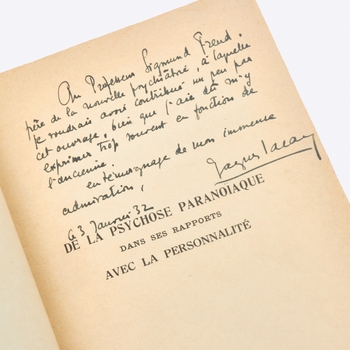 Au Professeur Sigmund Freud,
père de la nouvelle psychiatrie, à laquelle
je voudrais avoir contribué un peu par
cet ouvrage, bien que j'aie dû m'y
exprimer trop souvent en fonction de
l'ancienne.
en témoignage de mon immense
admiration,
Jacques Lacan
Ce 3 Janvier 32
DE LA PSYCHOSE PARANOÏAQUE
DANS SES RAPPORTS
AVEC LA PERSONNALITÉ